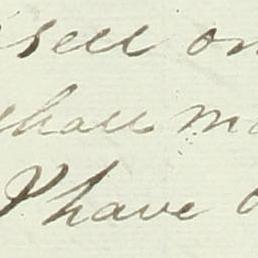 sell on
shall m
I have